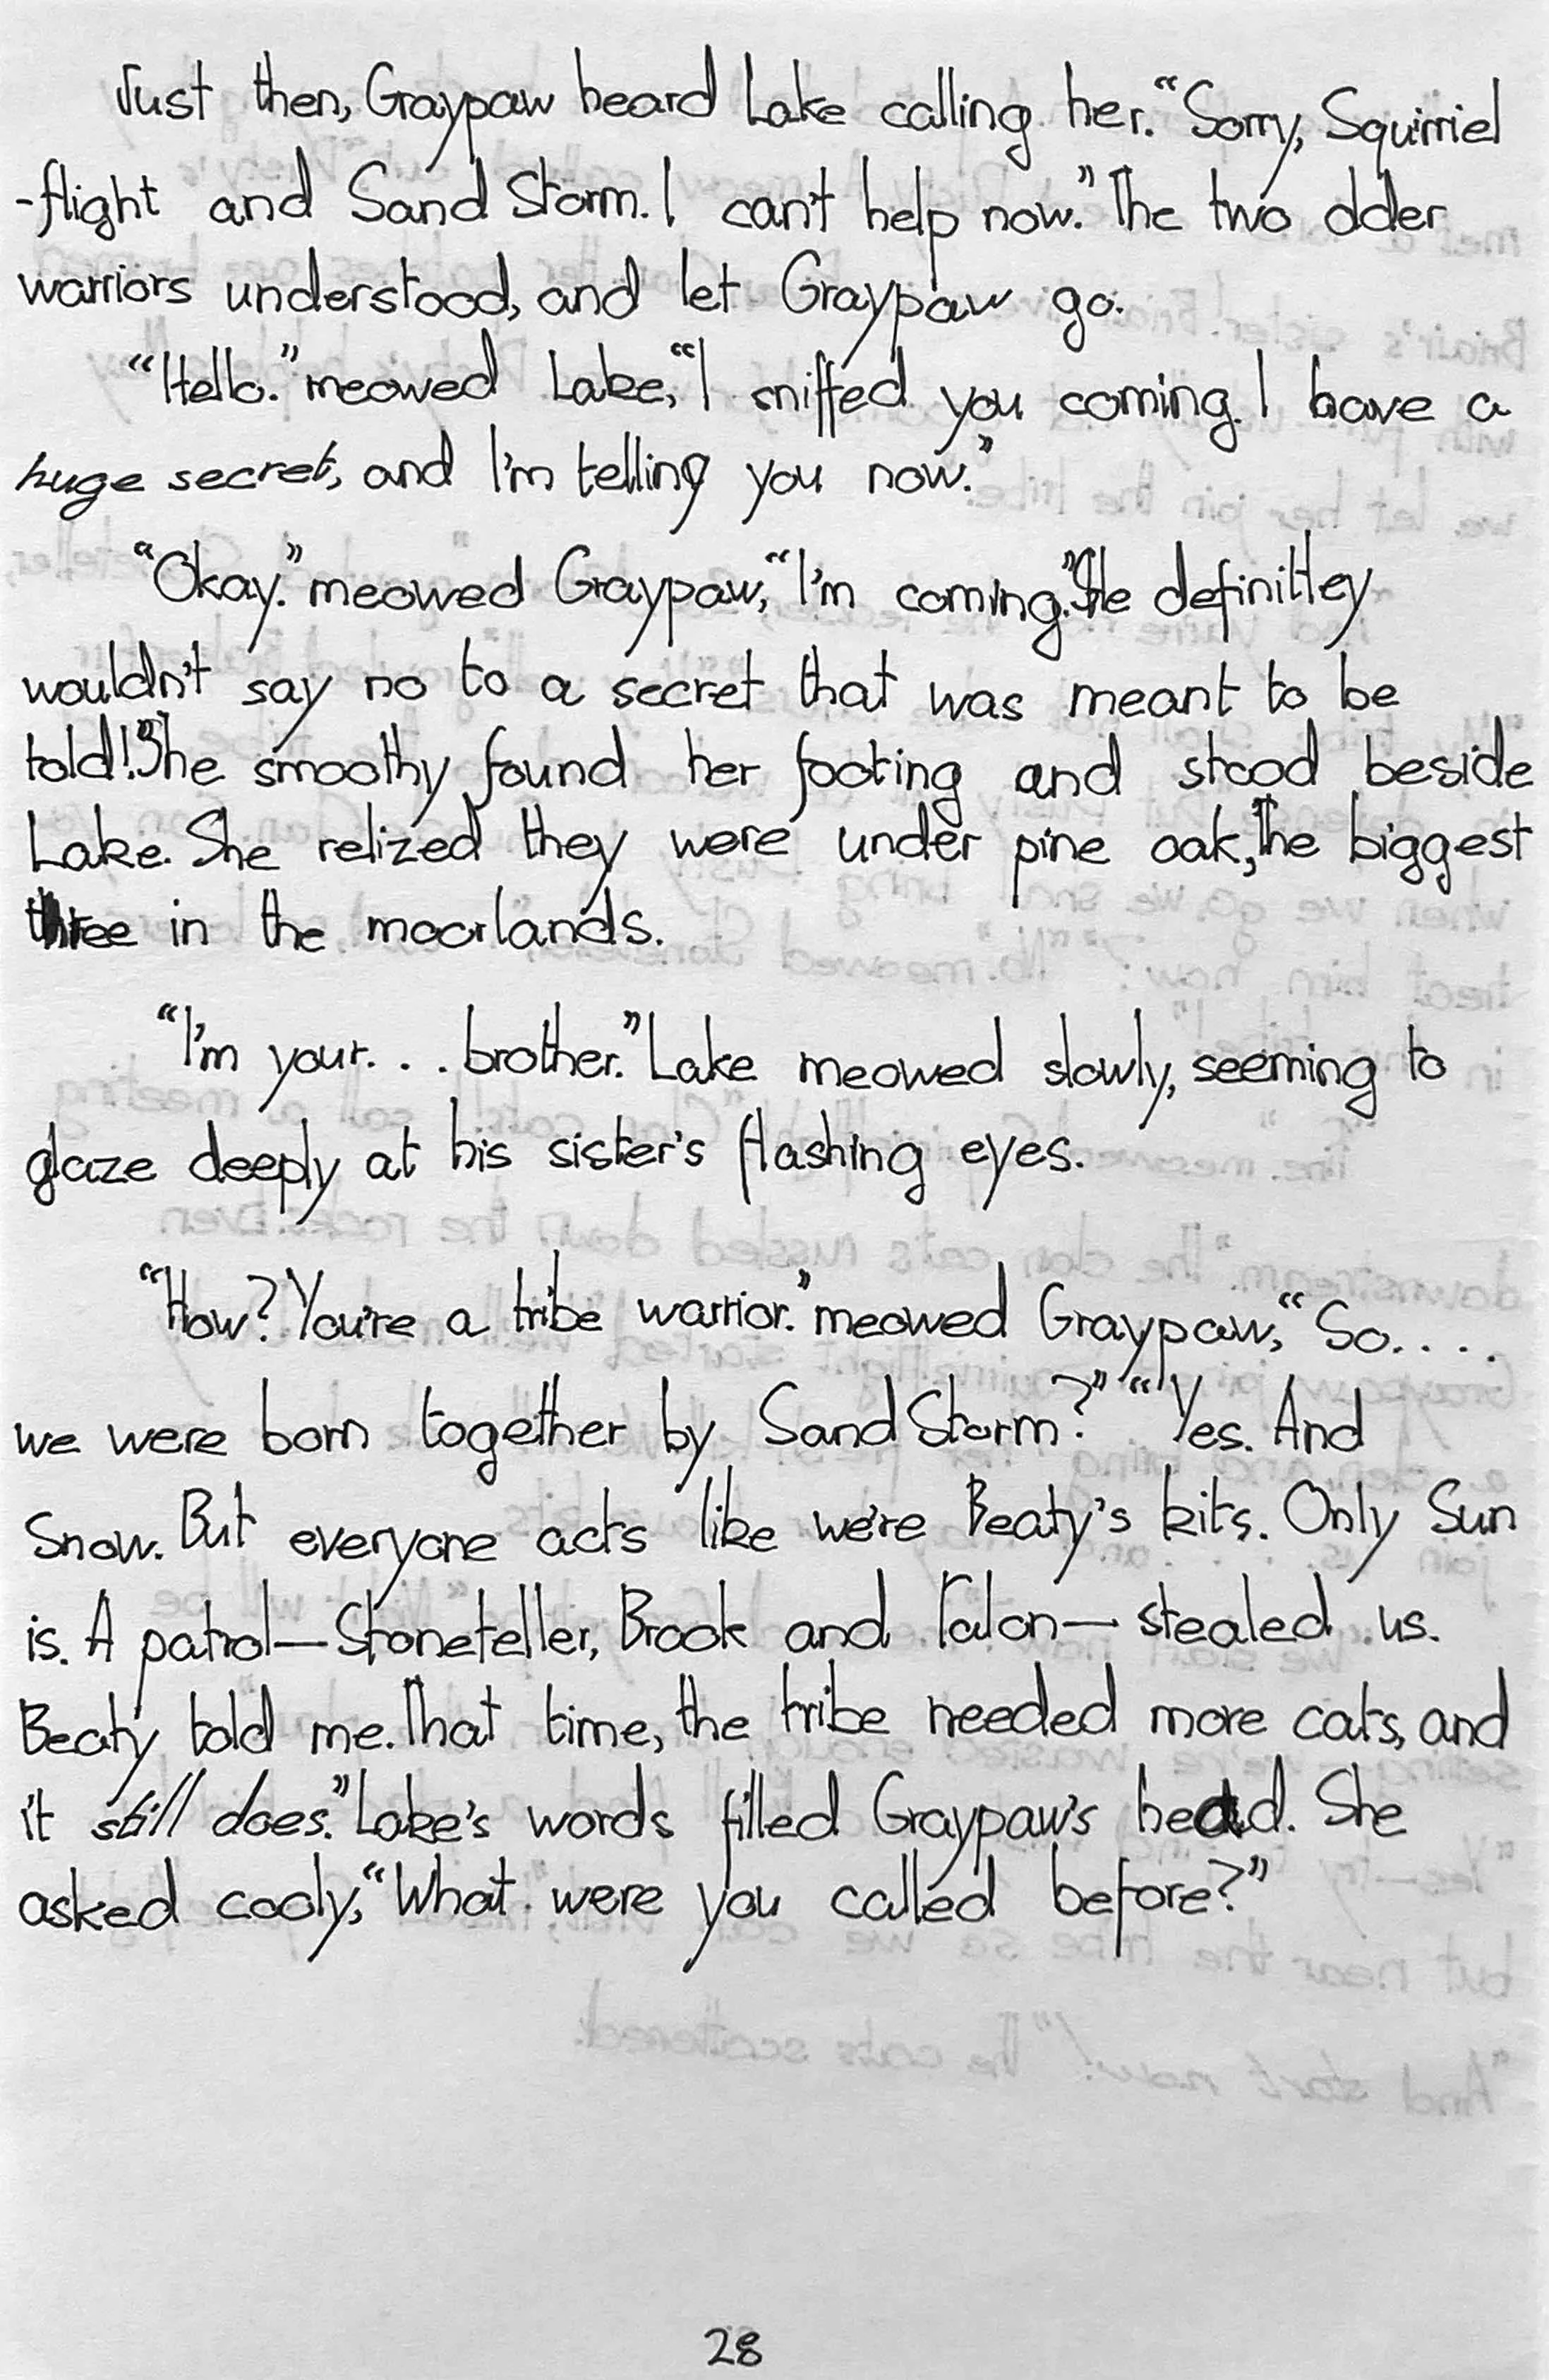 Just then, Graypaw heard Lake calling her. “Sorry, Squirriel
-flight and SandStorm. I can't help now.” The two older
warriors understood, and let Graypaw go.
“Hello.” meowed Lake, “I sniffed you coming. I have a
huge secret, and I'm telling you now.”
“Okay.” meowed Graypaw, “I'm coming.” She definittey
wouldn't say no to a secret that was meant to be
told!” She smoothy found her footing and stood beside
Lake. She relized they were under pine oak, the biggest
three in the moorlands.
“I'm your. . . brother.” Lake meowed slowly, seeming to
glaze deeply at his sister's flashing eyes.
“How? You're a tribe warrior.” meowed Graypaw, “So. . . .
we were born together by SandStorm?” “Yes. And
Snow. But everyone acts like we're Beaty's kits. Only Sun
is. A patrol—Stoneteller, Brook and Talon—stealed us.
Beaty told me. That time, the tribe needed more cats, and
it still does.” Lake's words filled Graypaw's head. She
asked cooly, “What were you called before?”
28